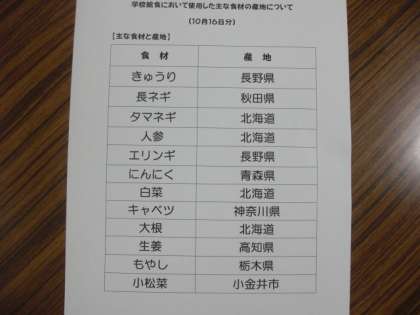 学校給食において使用した主な食材の産地について
（10月16日分）
【主な食材と産地】
食 材 産 地
きゅうり 長野県
長ネギ 秋田県
タマネギ 北海道
人参 北海道
エリンギ 長野県
にんにく 青森県
白菜 北海道
キャベツ 神奈川県
大根 北海道
生姜 高知県
もやし 栃木県
小松菜 小金井市